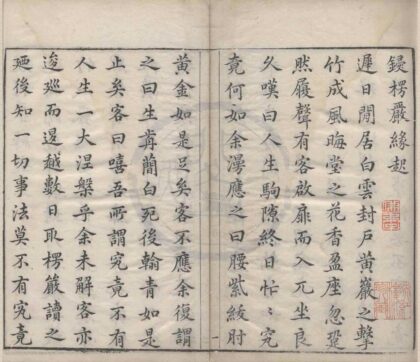 鋟楞嚴緣起
遲日閒居白雲封戶黃巖之擊
竹成風晦堂之花香盈座忽跫
然履聲有客啟扉而入兀坐良
久嘆曰人生駒隙終日忙忙究
竟何如余漫應之曰腰紫綬肘
黃金如是足矣客不應余復謂
之曰生耑蘭白死後翰青如是
止矣客曰嘻吾所謂究竟不有
人生一大涅槃乎余未解客亦
逡巡而邊越數日取楞嚴讀之
廼後知一切事法莫不有究竟